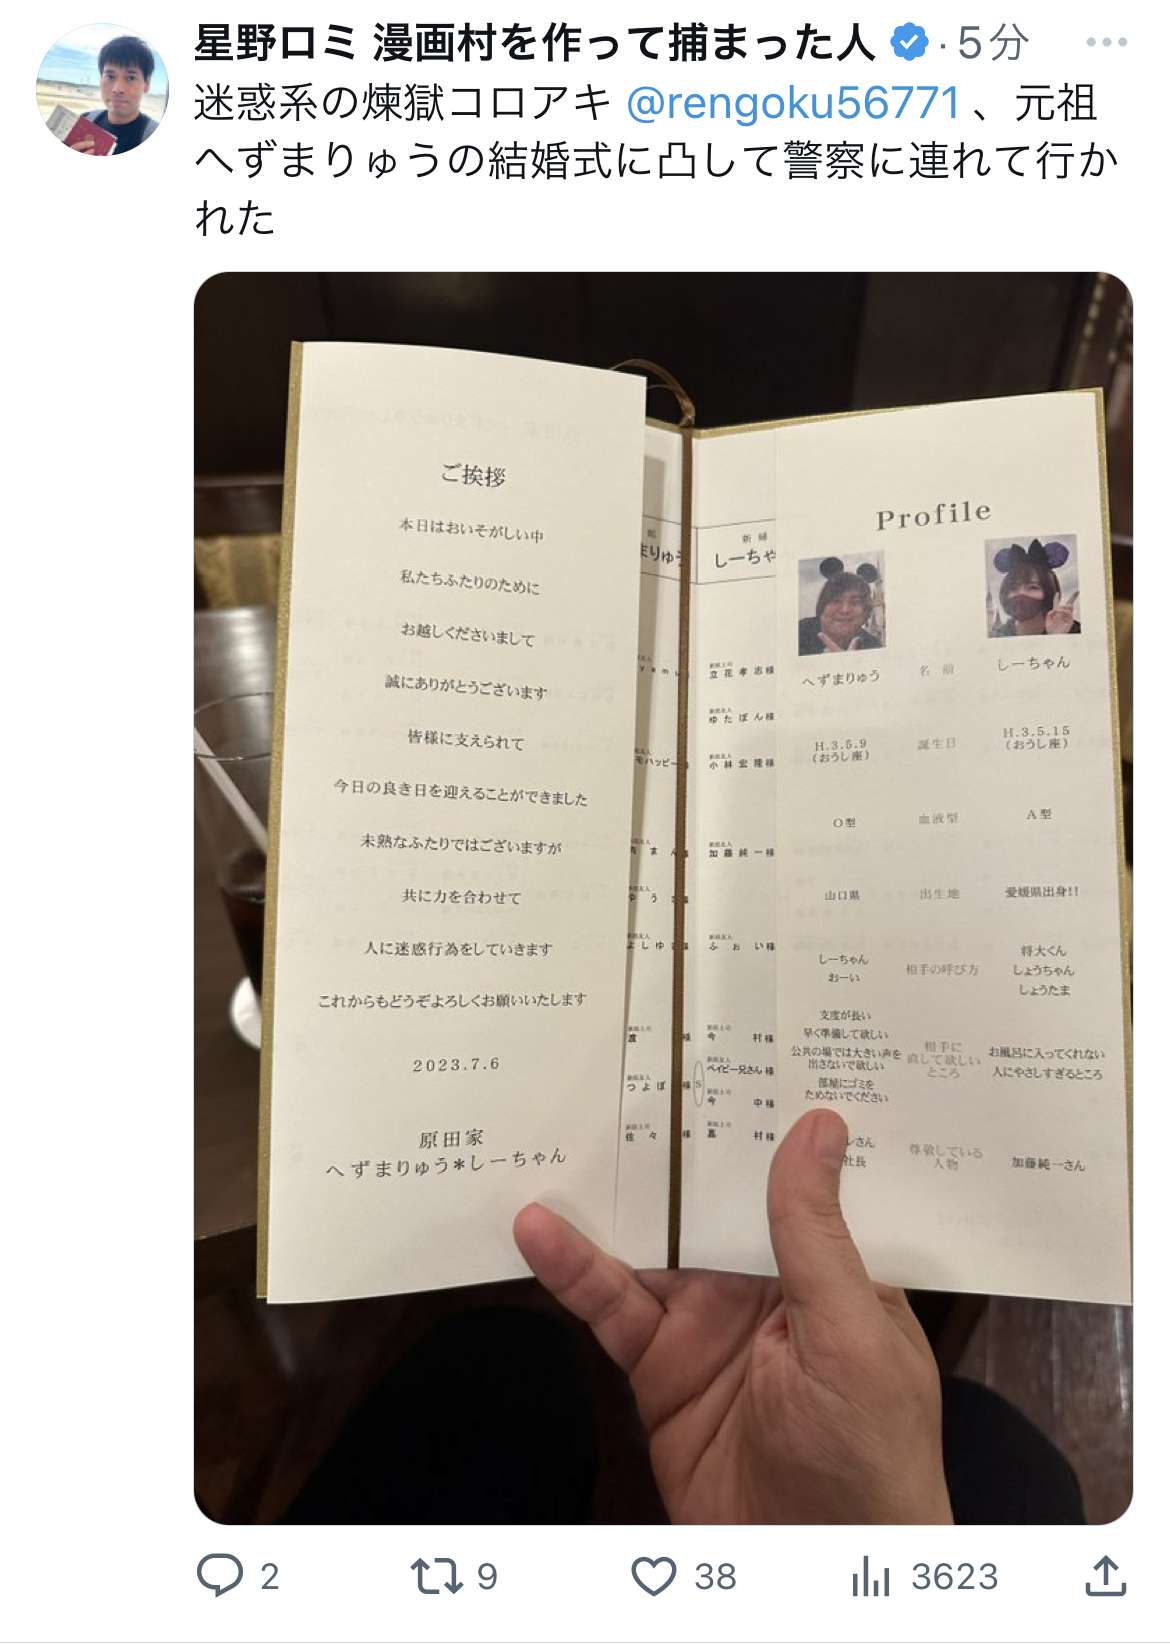 星野ロミ 漫画村を作って捕まった人 · 5分
迷惑系の煉獄コロアキ @rengoku56771 、元祖
へずまりゅうの結婚式に凸して警察に連れて行か
れた
ご挨拶
本日はおいそがしい中
私たちふたりのために
お越しくださいまして
誠にありがとうございます
皆様に支えられて
今日の良き日を迎えることができました
未熟なふたりではございますが
共に力を合わせて
人に迷惑行為をしていきます
これからもどうぞよろしくお願いいたします
2023.7.6
原田家
へずまりゅう*しーちゃん
郎
まりゅう
モハッピー
ゆう
よしゆき
渡 様
つよぽ 様
佐々 様
新婦
しーちゃ
新郎上司
立花孝志様
新郎友人
ゆたぼん様
新郎友人
小林宏隆様
新郎友人
加藤純一様
新郎友人
ふぉい様
新郎上司
今村様
新郎友人
ベイビー兄さん様
S
新郎上司
今中様
新郎上司
嘉村様
Profile
へずまりゅう 名前 しーちゃん
H.3.5.9 誕生日 H.3.5.15
(おうし座) (おうし座)
O型 血液型 A型
山口県 出生地 愛媛県出身!!
しーちゃん 相手の呼び方 将大くん
おーい しょうちゃん
しょうたま
支度が長い
早く準備して欲しい
公共の場では大きい声を
出さないで欲しい
部屋にゴミを
ためないでください
相手に
直して欲しい
ところ
お風呂に入ってくれない
人にやさしすぎるところ
レさん
社長
尊敬している
人物
加藤純一さん
2 9 38 3623